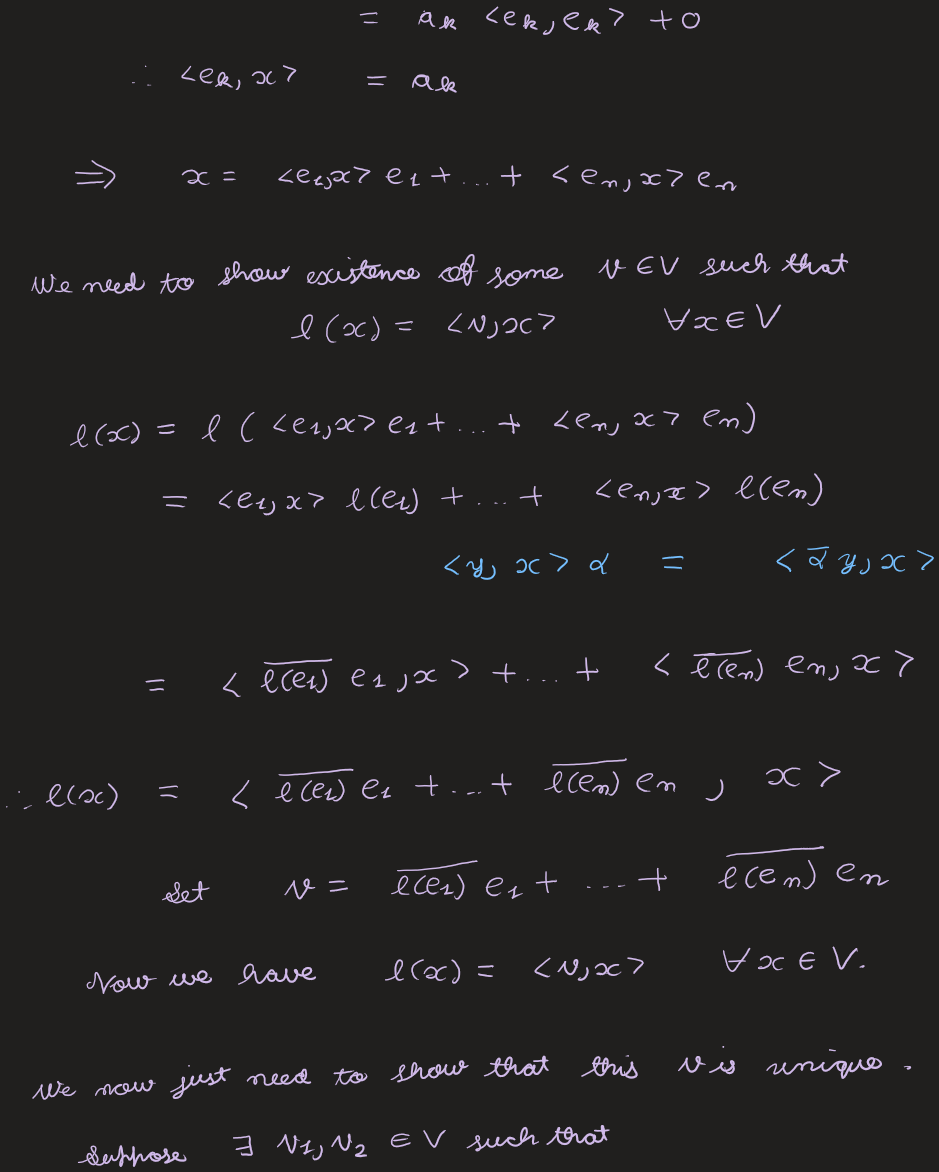 = a_k <e_k, e_k> + 0
∴ <e_k, x> = a_k
⇒ x = <e_1, x> e_1 + ... + <e_n, x> e_n
We need to show existence of some v ∈ V such that
l(x) = <v, x> ∀x ∈ V
l(x) = l ( <e_1, x> e_1 + ... + <e_n, x> e_n)
= <e_1, x> l(e_1) + ... + <e_n, x> l(e_n)
<y, x> α = <ᾱ y, x>
= < \overline{l(e_1)} e_1, x > + ... + < \overline{l(e_n)} e_n, x >
∴ l(x) = < \overline{l(e_1)} e_1 + ... + \overline{l(e_n)} e_n , x >
Set v = \overline{l(e_1)} e_1 + ... + \overline{l(e_n)} e_n
Now we have l(x) = <v, x> ∀ x ∈ V.
We now just need to show that this v is unique.
Suppose ∃ v_1, v_2 ∈ V such that